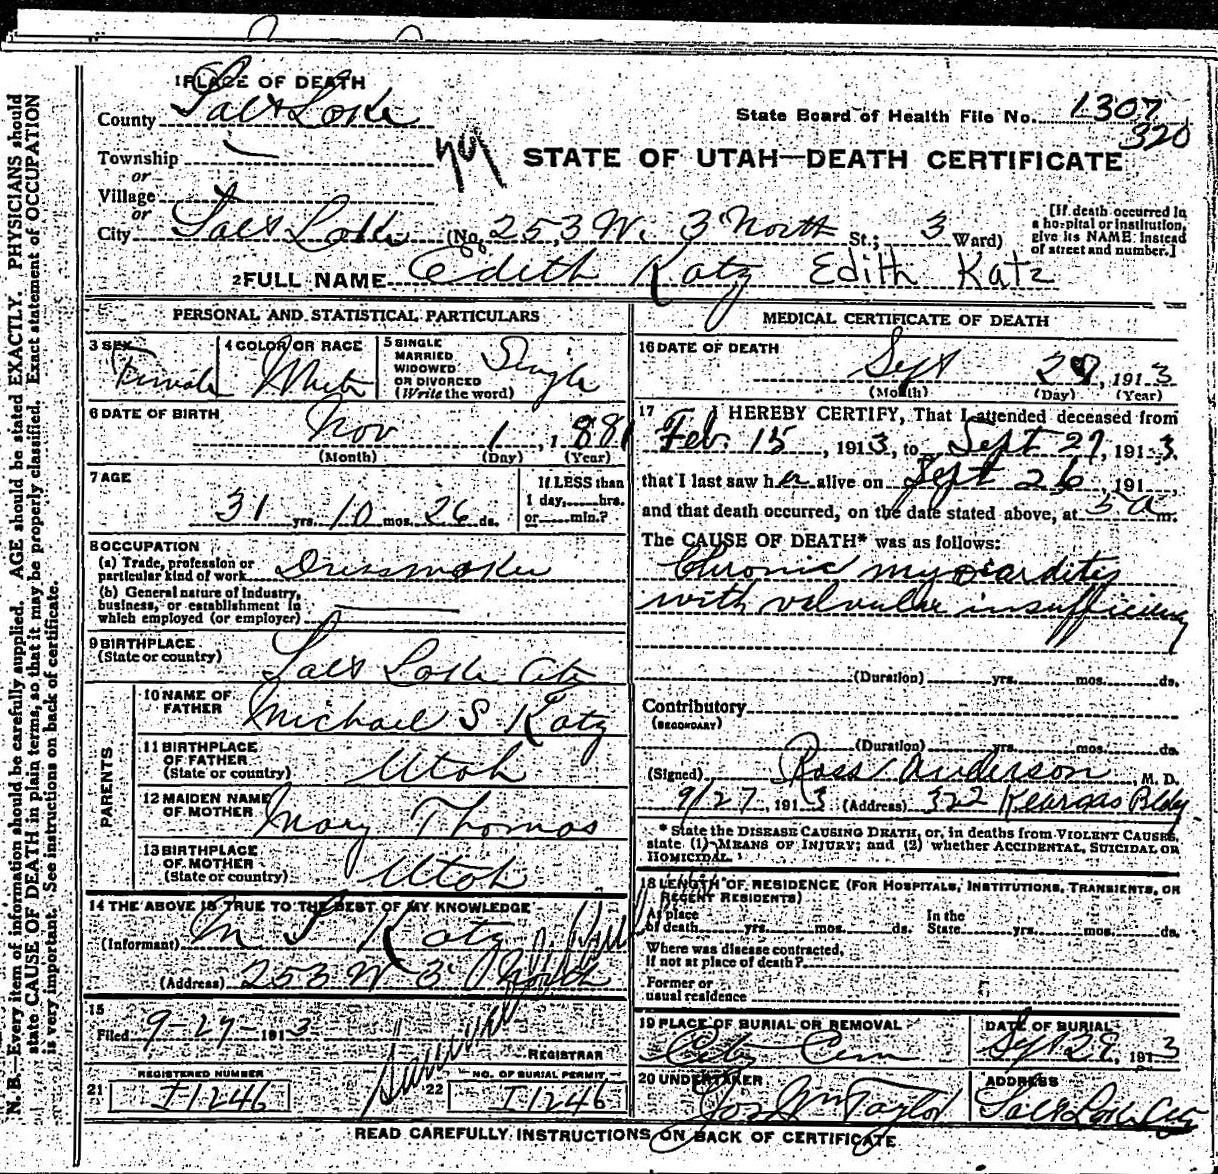 1 PLACE OF DEATH
County Salt Lake
State Board of Health File No. 1307
320
Township
or
Village
or
STATE OF UTAH—DEATH CERTIFICATE
City Salt Lake (No. 253 W. 3 North St.; 3 Ward)
[If death occurred in
a hospital or institution,
give its NAME instead
of street and number.]
2 FULL NAME Edith Katz Edith Katz
PERSONAL AND STATISTICAL PARTICULARS
3 SEX Female
4 COLOR OR RACE White
5 SINGLE
MARRIED
WIDOWED
OR DIVORCED
(Write the word) Single
6 DATE OF BIRTH
Nov 1, 1881
(Month) (Day) (Year)
7 AGE
31 yrs. 10 mos. 26 ds.
If LESS than
1 day, hrs.
or min.?
8 OCCUPATION
(a) Trade, profession or
particular kind of work Dressmaker
(b) General nature of Industry,
business, or establishment in
which employed (or employer)
9 BIRTHPLACE
(State or country) Salt Lake City
PARENTS
10 NAME OF
FATHER Michael S. Katz
11 BIRTHPLACE
OF FATHER
(State or country) Utah
12 MAIDEN NAME
OF MOTHER Mary Thomas
13 BIRTHPLACE
OF MOTHER
(State or country) Utah
14 THE ABOVE IS TRUE TO THE BEST OF MY KNOWLEDGE
(Informant) M S Katz
(Address) 253 W 3 North
15
Filed 9-27-1913
REGISTRAR
REGISTERED NUMBER
21 I1246
NO. OF BURIAL PERMIT
22 I1246
MEDICAL CERTIFICATE OF DEATH
16 DATE OF DEATH
Sept 27, 1913
(Month) (Day) (Year)
17 I HEREBY CERTIFY, That I attended deceased from
Feb. 15, 1913, to Sept 27, 1913.
that I last saw her alive on Sept 26, 191
and that death occurred, on the date stated above, at 5 a m.
The CAUSE OF DEATH* was as follows:
Chronic myocarditis
with valvular insufficiency
(Duration) yrs. mos. ds.
Contributory
(SECONDARY)
(Duration) yrs. mos. ds.
(Signed) Ross Anderson, M. D.
9/27, 1913 (Address) 322 Kearns Bldg
* State the DISEASE CAUSING DEATH, or, in deaths from VIOLENT CAUSES,
state (1) MEANS OF INJURY; and (2) whether ACCIDENTAL, SUICIDAL OR
HOMICIDAL.
18 LENGTH OF RESIDENCE (FOR HOSPITALS, INSTITUTIONS, TRANSIENTS, OR
RECENT RESIDENTS)
At place
of death yrs. mos. ds.
In the
State yrs. mos. ds.
Where was disease contracted,
if not at place of death?
Former or
usual residence
19 PLACE OF BURIAL OR REMOVAL
City Cem
DATE OF BURIAL
Sept 29, 1913
20 UNDERTAKER
Jos Wm Taylor
ADDRESS
Salt Lake City
READ CAREFULLY INSTRUCTIONS ON BACK OF CERTIFICATE
N. B.—Every item of information should be carefully supplied. AGE should be stated EXACTLY. PHYSICIANS should
state CAUSE OF DEATH in plain terms, so that it may be properly classified. Exact statement of OCCUPATION
is very important. See instructions on back of certificate.